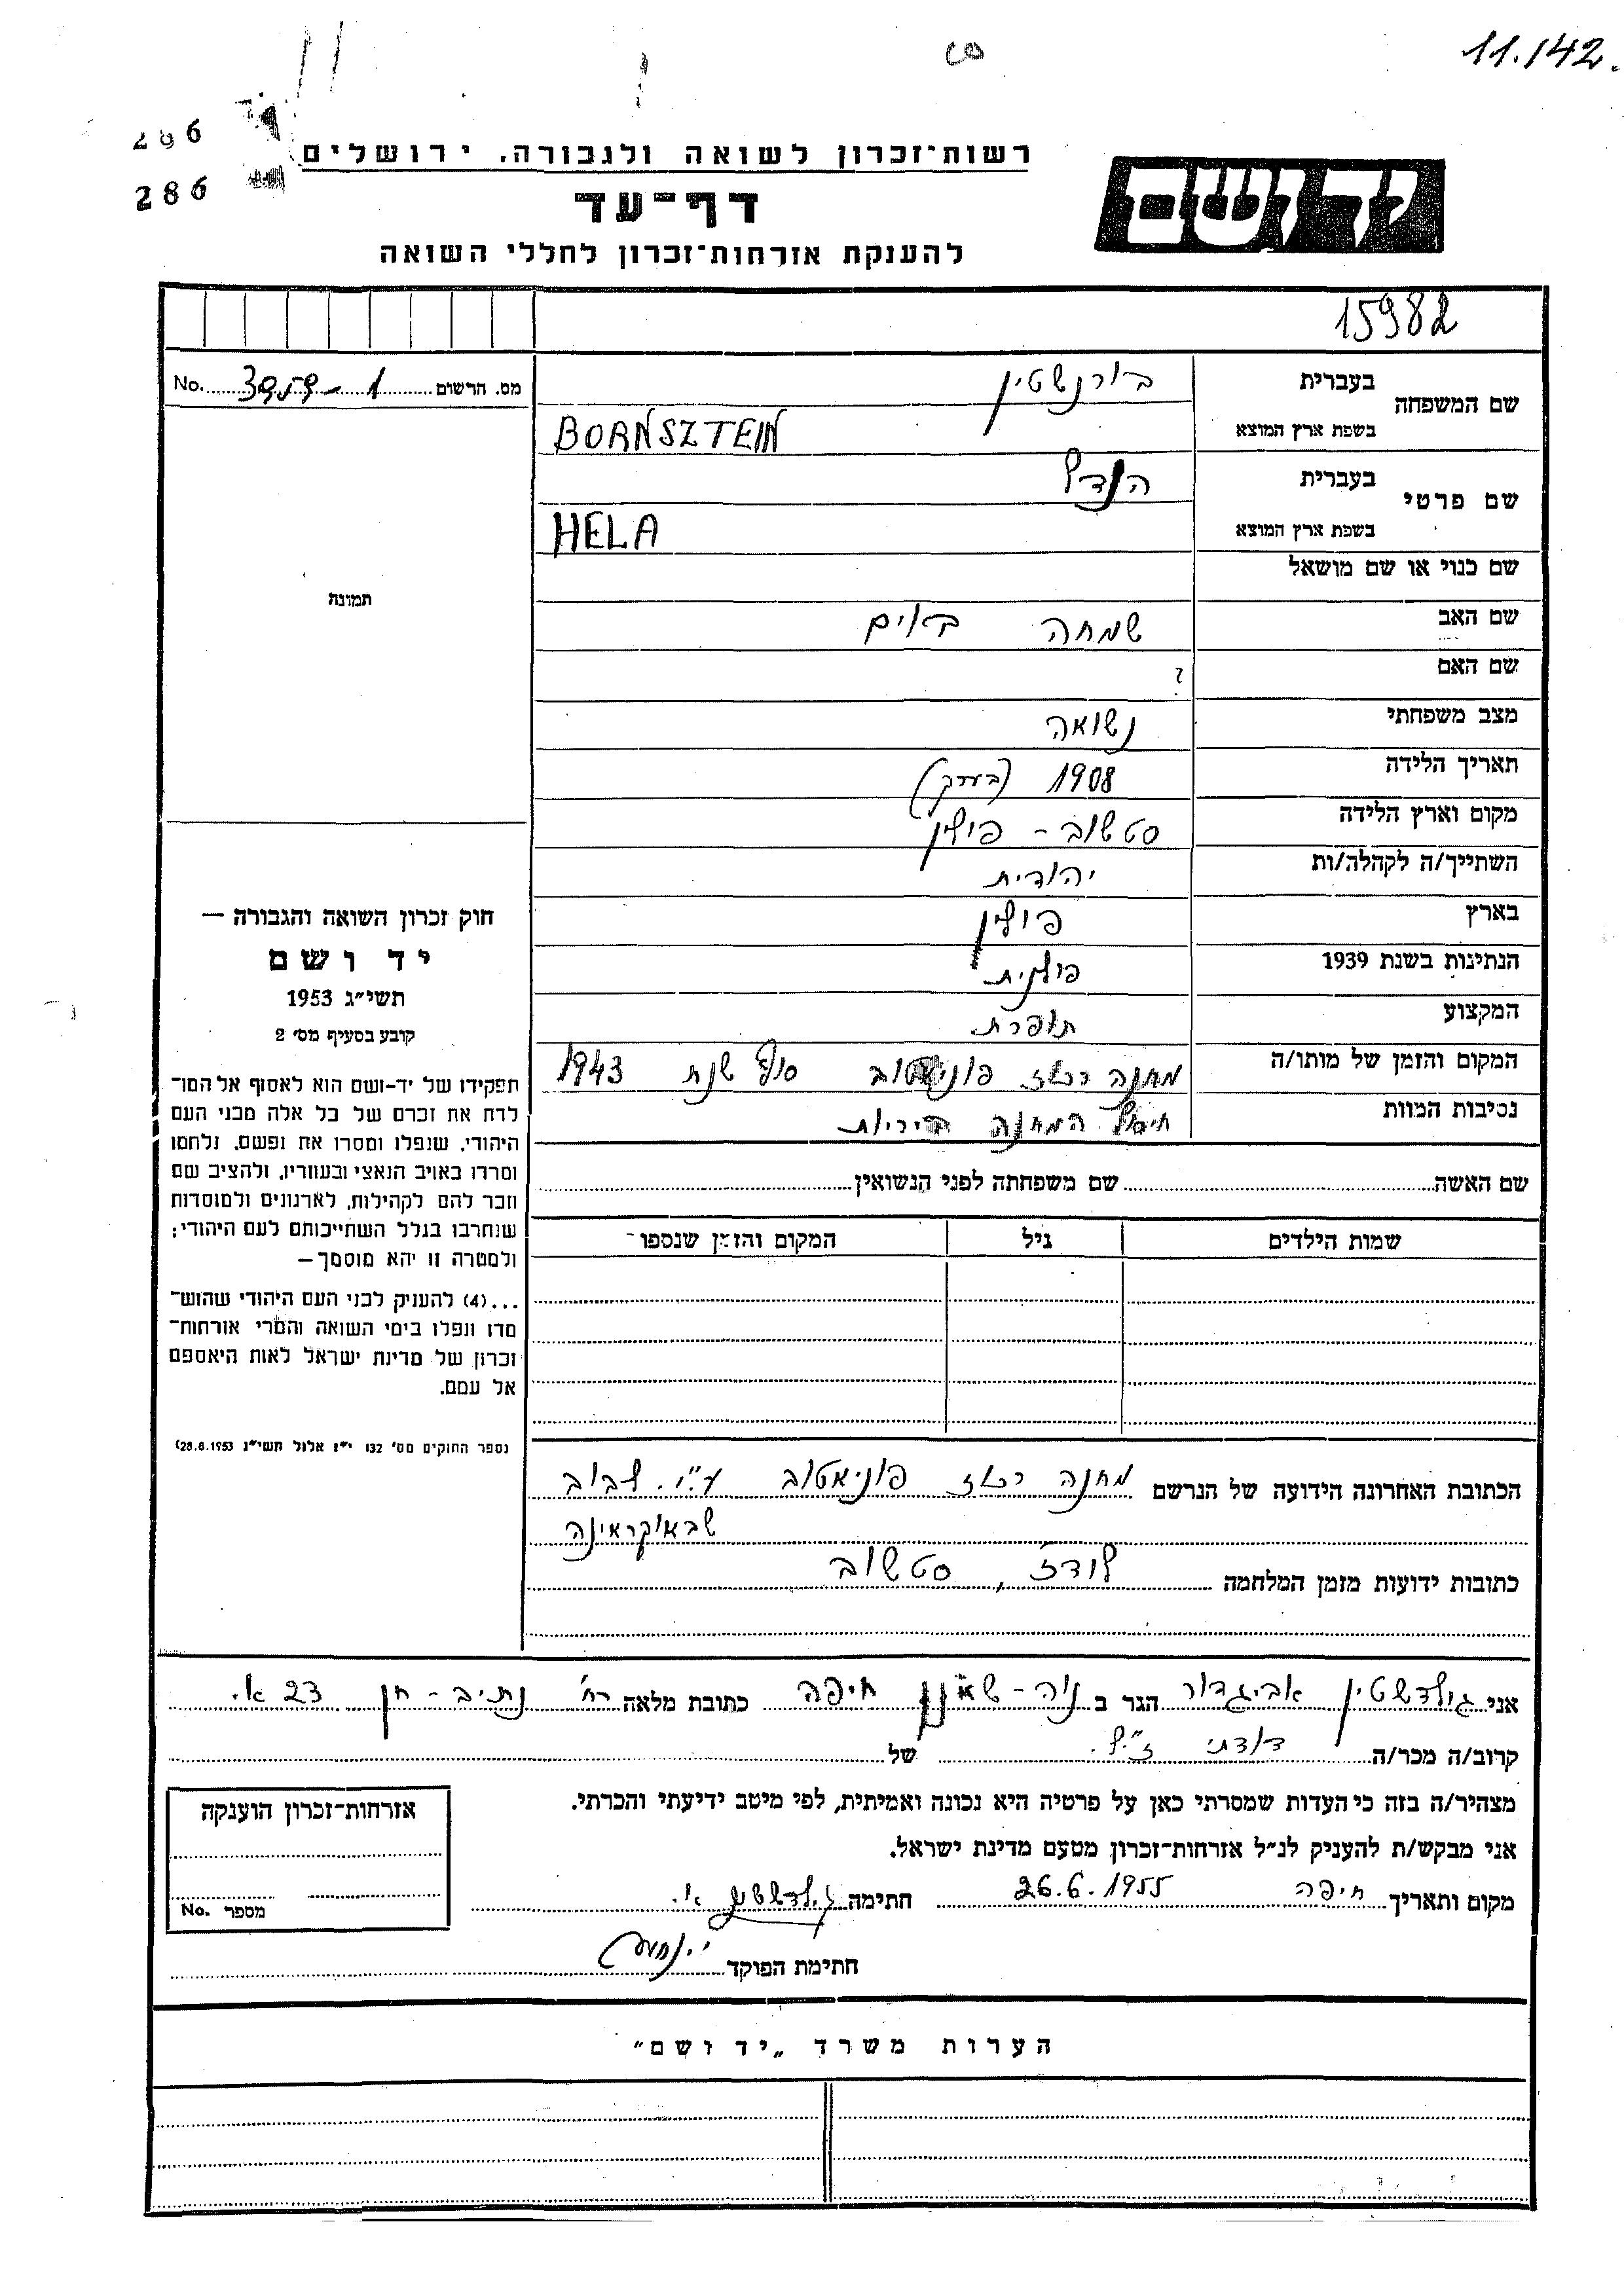 11.142.
286
286
רשות־זכרון לשואה ולגבורה, ירושלים
דף־עד
להענקת אזרחות־זכרון לחללי השואה
יד ושם
15982
מס. הרשום 3959-1 No.
שם המשפחה
בעברית בורנשטין
בשפת ארץ המוצא BORNSZTEIN
שם פרטי
בעברית הנדל
בשפת ארץ המוצא HELA
שם כנוי או שם מושאל
שם האב שמחה בוים
שם האם ?
מצב משפחתי נשואה
תאריך הלידה 1908 (בערך)
מקום וארץ הלידה סטשוב - פולין
השתייך/ה לקהלה/ות יהודית
בארץ פולין
הנתינות בשנת 1939 פולנית
המקצוע תופרת
המקום והזמן של מותו/ה מחנה פוניאטוב סוף שנת 1943
נסיבות המוות חיסול המחנה ביריות
שם האשה שם משפחתה לפני הנשואין
שמות הילדים גיל המקום והזמן שנספו
תמונה
חוק זכרון השואה והגבורה —
יד ושם
תשי״ג 1953
קובע בסעיף מס׳ 2
תפקידו של יד-ושם הוא לאסוף אל המו־
לדת את זכרם של כל אלה מבני העם
היהודי, שנפלו ומסרו את נפשם, נלחמו
ומרדו באויב הנאצי ובעוזריו, ולהציב שם
וזכר להם לקהילות, לארגונים ולמוסדות
שנחרבו בגלל השתייכותם לעם היהודי;
ולמטרה זו יהא מוסמך —
...(4) להעניק לבני העם היהודי שהוש־
מדו ונפלו בימי השואה והמרי אזרחות־
זכרון של מדינת ישראל לאות היאספם
אל עמם.
(ספר החוקים מס׳ 132 י״ז אלול תשי״ג 28.8.1953)
הכתובת האחרונה הידועה של הנרשם מחנה פוניאטוב ע״י. לבוב
שבאוקראינה
כתובות ידועות מזמן המלחמה לודז, סטשוב
אני גולדשטין אביגדור הגר ב נוה-שאנן חיפה כתובת מלאה רח׳ נתיב-חן 23 א.
קרוב/ה מכר/ה דודתי ז״ל. של
מצהיר/ה בזה כי העדות שמסרתי כאן על פרטיה היא נכונה ואמיתית, לפי מיטב ידיעתי והכרתי.
אני מבקש/ת להעניק לנ״ל אזרחות־זכרון מטעם מדינת ישראל.
מקום ותאריך חיפה 26.6.1955 חתימה גולדשטין א.
חתימת הפוקד
אזרחות־זכרון הוענקה
מספר No.
הערות משרד „יד ושם״